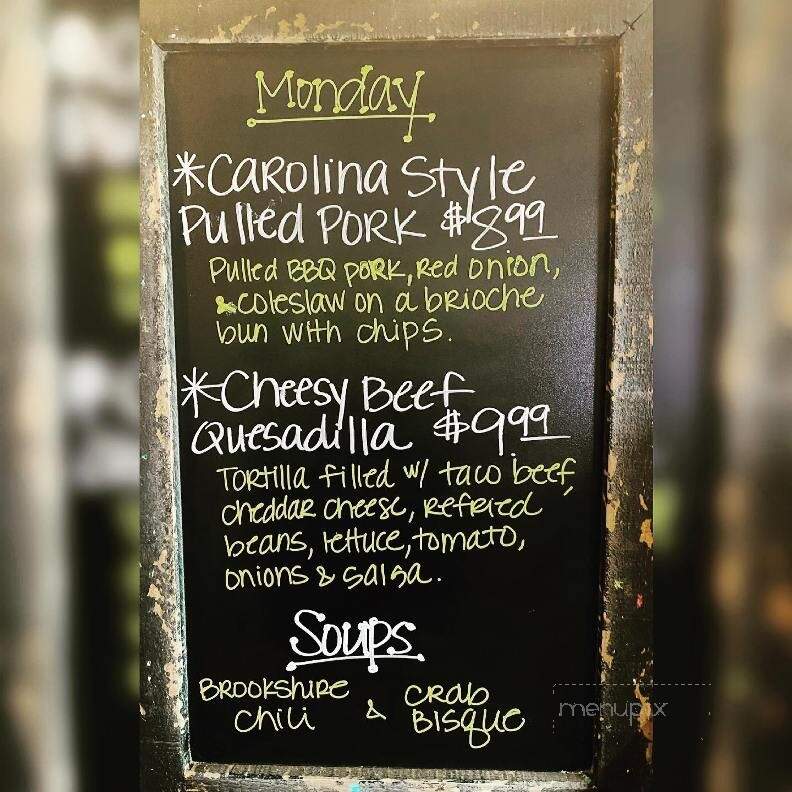 Monday
*Carolina Style
Pulled Pork $8.99
Pulled BBQ pork, red onion,
& coleslaw on a brioche
bun with chips.
*Cheesy Beef
Quesadilla $9.99
Tortilla filled w/ taco beef,
cheddar cheese, refried
beans, lettuce, tomato,
onions & salsa.
Soups
Brookshire Chili & Crab Bisque
menupix